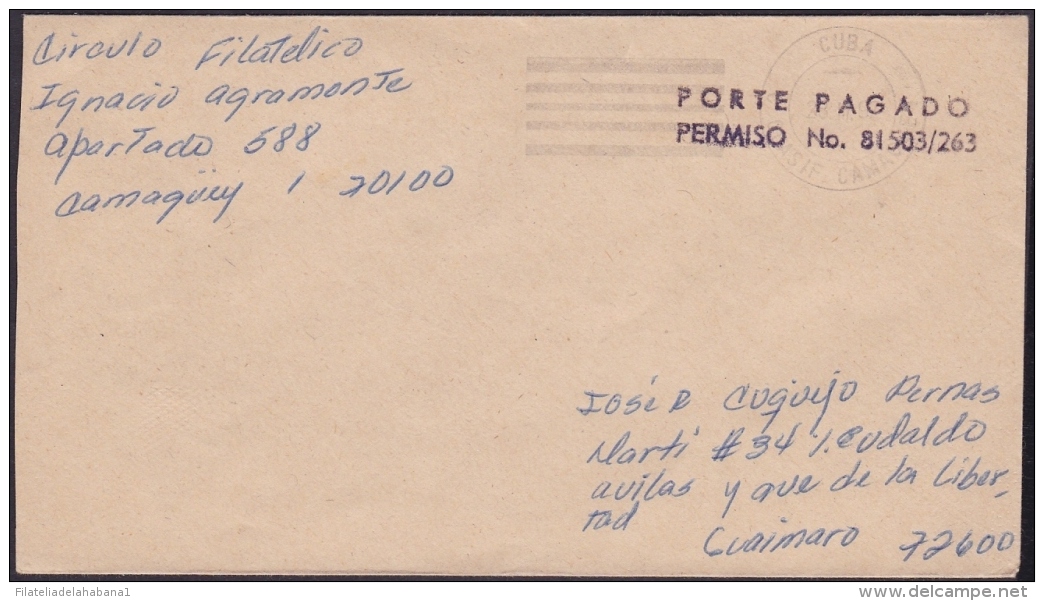 Circulo Filatelico
Ignacio agramonte
apartado 588
Camagüey 1 70100
CUBA
PORTE PAGADO
PERMISO No. 81503/263
José R Cuquejo Pernas
Martí #34 %. Eudaldo
avilas y ave de la Liber-
tad
Guaimaro 72600
Filateliadelahabana1
delcampe.net